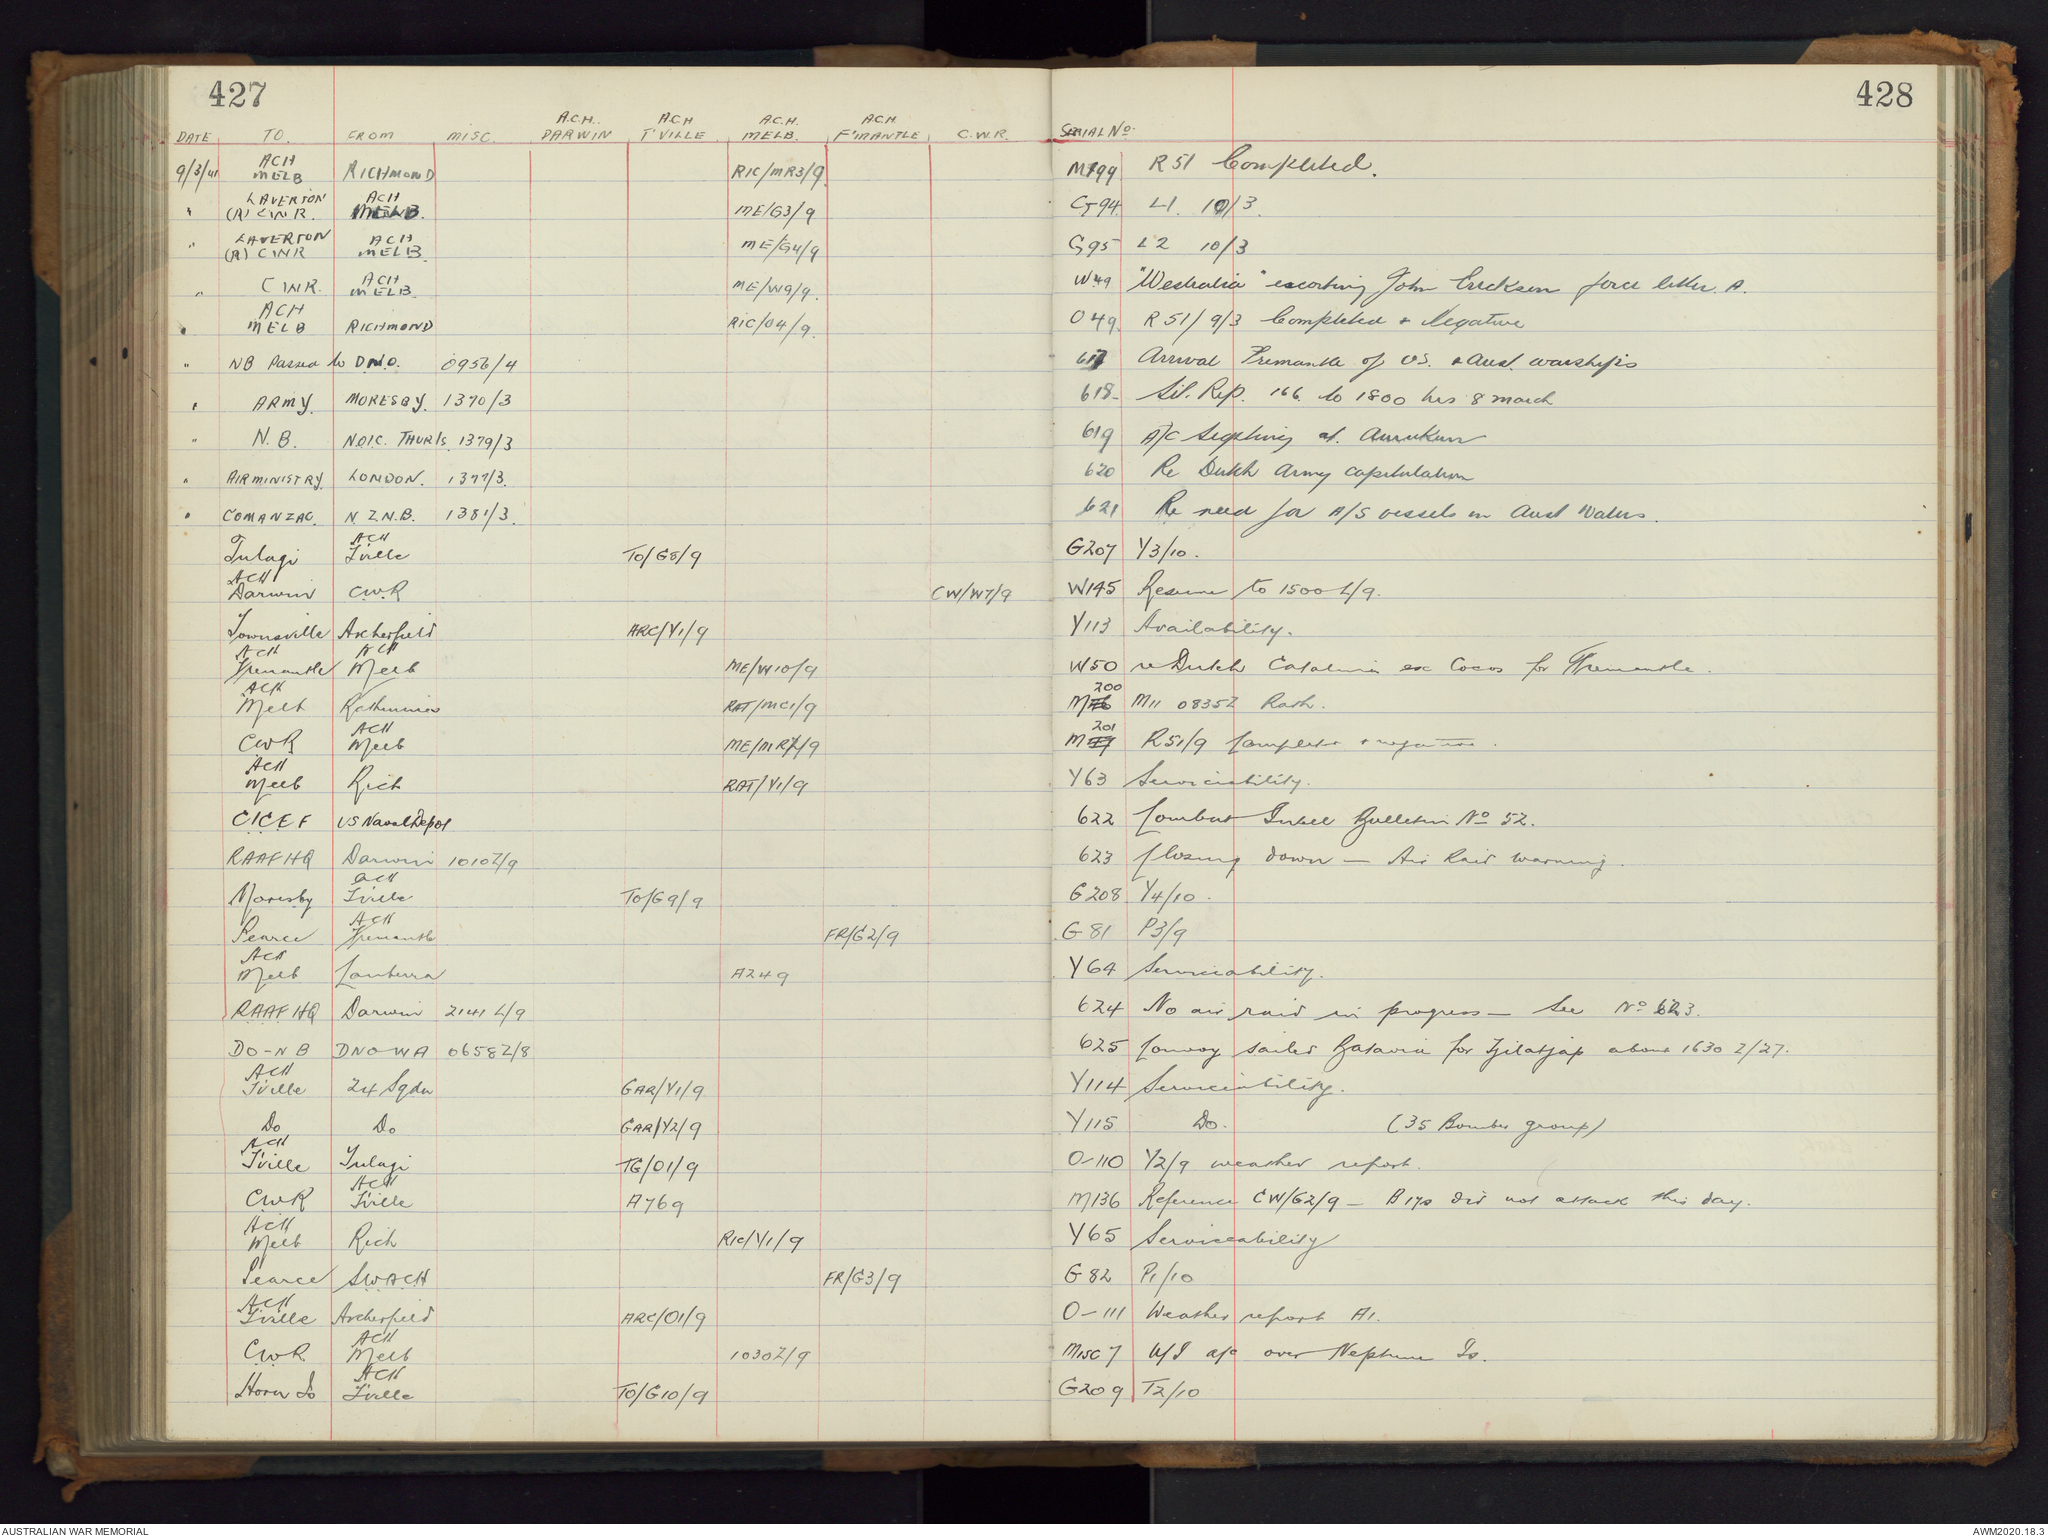 427
428
DATE TO. FROM MISC. A.C.H. DARWIN A.C.H T'VILLE A.C.H. MELB. A.C.H F'MANTLE C.W.R. SERIAL No.
9/3/41 ACH MELB RICHMOND RIC/MR3/9 M199 R51 Completed.
" LAVERTON (R) CWR. ACH MELB. ME/G3/9 G94. L1. 10/3.
" LAVERTON (R) CWR ACH MELB. ME/G4/9 G95 L2 10/3
" CWR. ACH MELB. ME/W9/9. W49 "Westralia" escorting John Erickson force letter A.
" ACH MELB RICHMOND RIC/04/9. O49. R51/9/3 Completed + Negative
" NB Passed to D.N.O. 0956/4 617 Arrival Fremantle of U.S. & Aust. warships
" ARMY. MORESBY. 1370/3 618- Sit. Rep. 166. to 1800 hrs 8 march
" N.B. N.O.I.C. THUR Is. 1379/3 619 A/C Sighting at Aurukun
" AIR MINISTRY. LONDON. 1377/3. 620 Re Dutch Army capitulation
" COMANZAC. N.Z.N.B. 1381/3. 621 Re need for A/S vessels in Aust Waters.
Tulagi ACH T'ville TO/G8/9 G207 Y3/10.
ACH Darwin CWR CW/W7/9 W145 Resume to 1500 L/9.
Townsville Archerfield ARC/Y1/9 Y113 Availability.
ACH Fremantle ACH Melb ME/W10/9 W50 re Dutch Catalina ex Cocos for Fremantle.
ACH Melb Rathmines RAT/MC1/9 M200 M11 0835Z Rath.
CWR ACH Melb ME/MR2/9 M201 R51/9 Completed + negative.
ACH Melb Rich RAT/Y1/9 Y63 Serviceability.
CICEF US Naval Depot 622 Combat Intell Bulletin No 52.
RAAF HQ Darwin 1010Z/9 623 Closing down — Air Raid warning.
Moresby ACH T'ville TO/G9/9 G208 Y4/10.
Pearce ACH Fremantle FR/G2/9 G81 P3/9
ACH Melb Canberra A249 Y64 Serviceability.
RAAF HQ Darwin 2141 L/9 624 No air raid in progress — See No 623.
DO-NB DNOWA 0658Z/8 625 Convoy sailed Batavia for Tjilatjap about 1630 Z/27.
ACH T'ville 24 Sqdn GAR/Y1/9 Y114 Serviceability.
Do Do GAR/Y2/9 Y115 Do. (35 Bomber group)
ACH T'ville Tulagi TG/01/9 O-110 Y2/9 weather report.
CWR ACH T'ville A769 M136 Reference CW/G2/9 — B17s did not attack this day.
ACH Melb Rich RIC/Y1/9 Y65 Serviceability
Pearce SWACH FR/G3/9 G82 P1/10
ACH T'ville Archerfield ARC/01/9 O-111 Weather report A1.
CWR ACH Melb 1030Z/9 Misc 7 U/I a/c over Neptune Is.
Horn Is ACH T'ville TO/G10/9 G209 T2/10
AUSTRALIAN WAR MEMORIAL
AWM2020.18.3